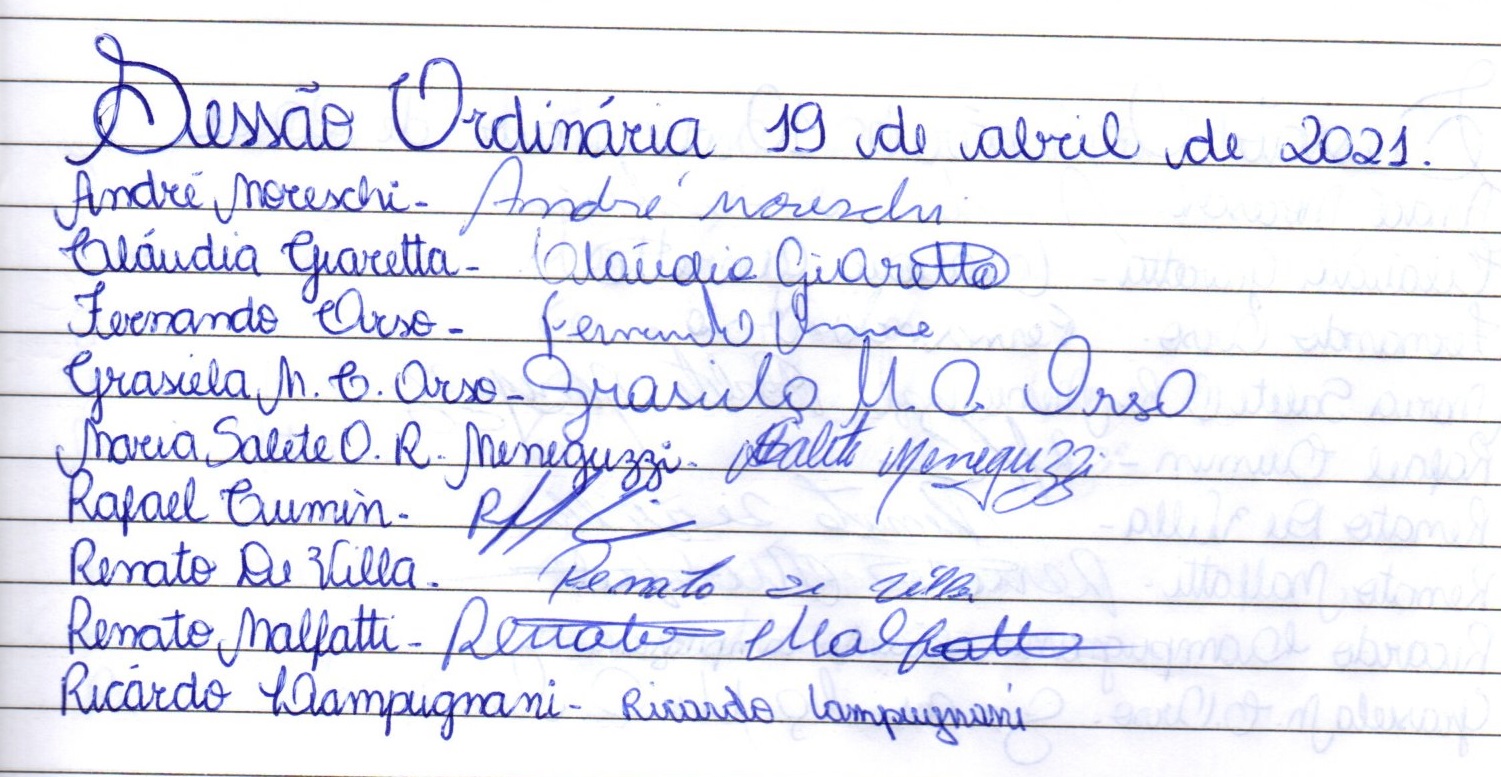 Sessão Ordinária 19 de abril de 2021.
André Moreschi - André Moreschi
Cláudia Giaretta - Claúdia Giaretta
Fernando Orso - Fernando
Grasiela M. C. Orso - Grasiela M. C. Orso
Maria Salete O. R. Meneguzzi. Salete Meneguzzi
Rafael Cumin -
Renato De Villa. Renato De Villa
Renato Malfatti - Renato Malfatti
Ricardo Lampugnani - Ricardo Lampugnani